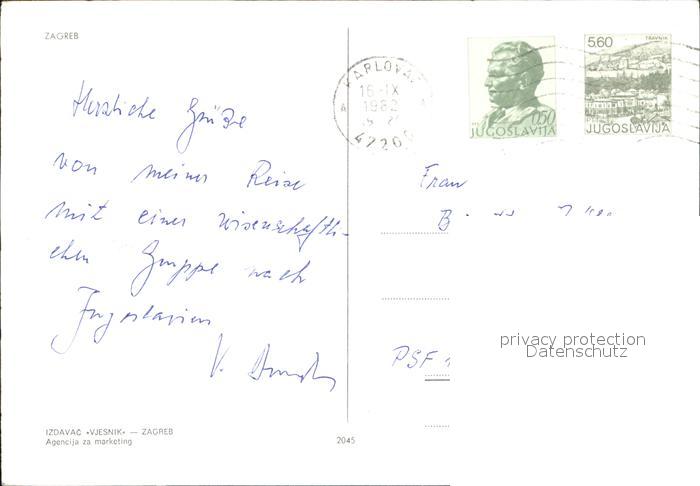 ZAGREB
KARLOVAC
16-IX
1982
47200
0.50
JUGOSLAVIJA
5.60
TRAVNIK
JUGOSLAVIJA
Herzliche Grüße
von meiner Reise
mit einer wissenschaftli-
chen Gruppe nach
Jugoslavien
V.
Frau
B
PSF
privacy protection
Datenschutz
IZDAVAČ »VJESNIK« — ZAGREB
Agencija za marketing
2045